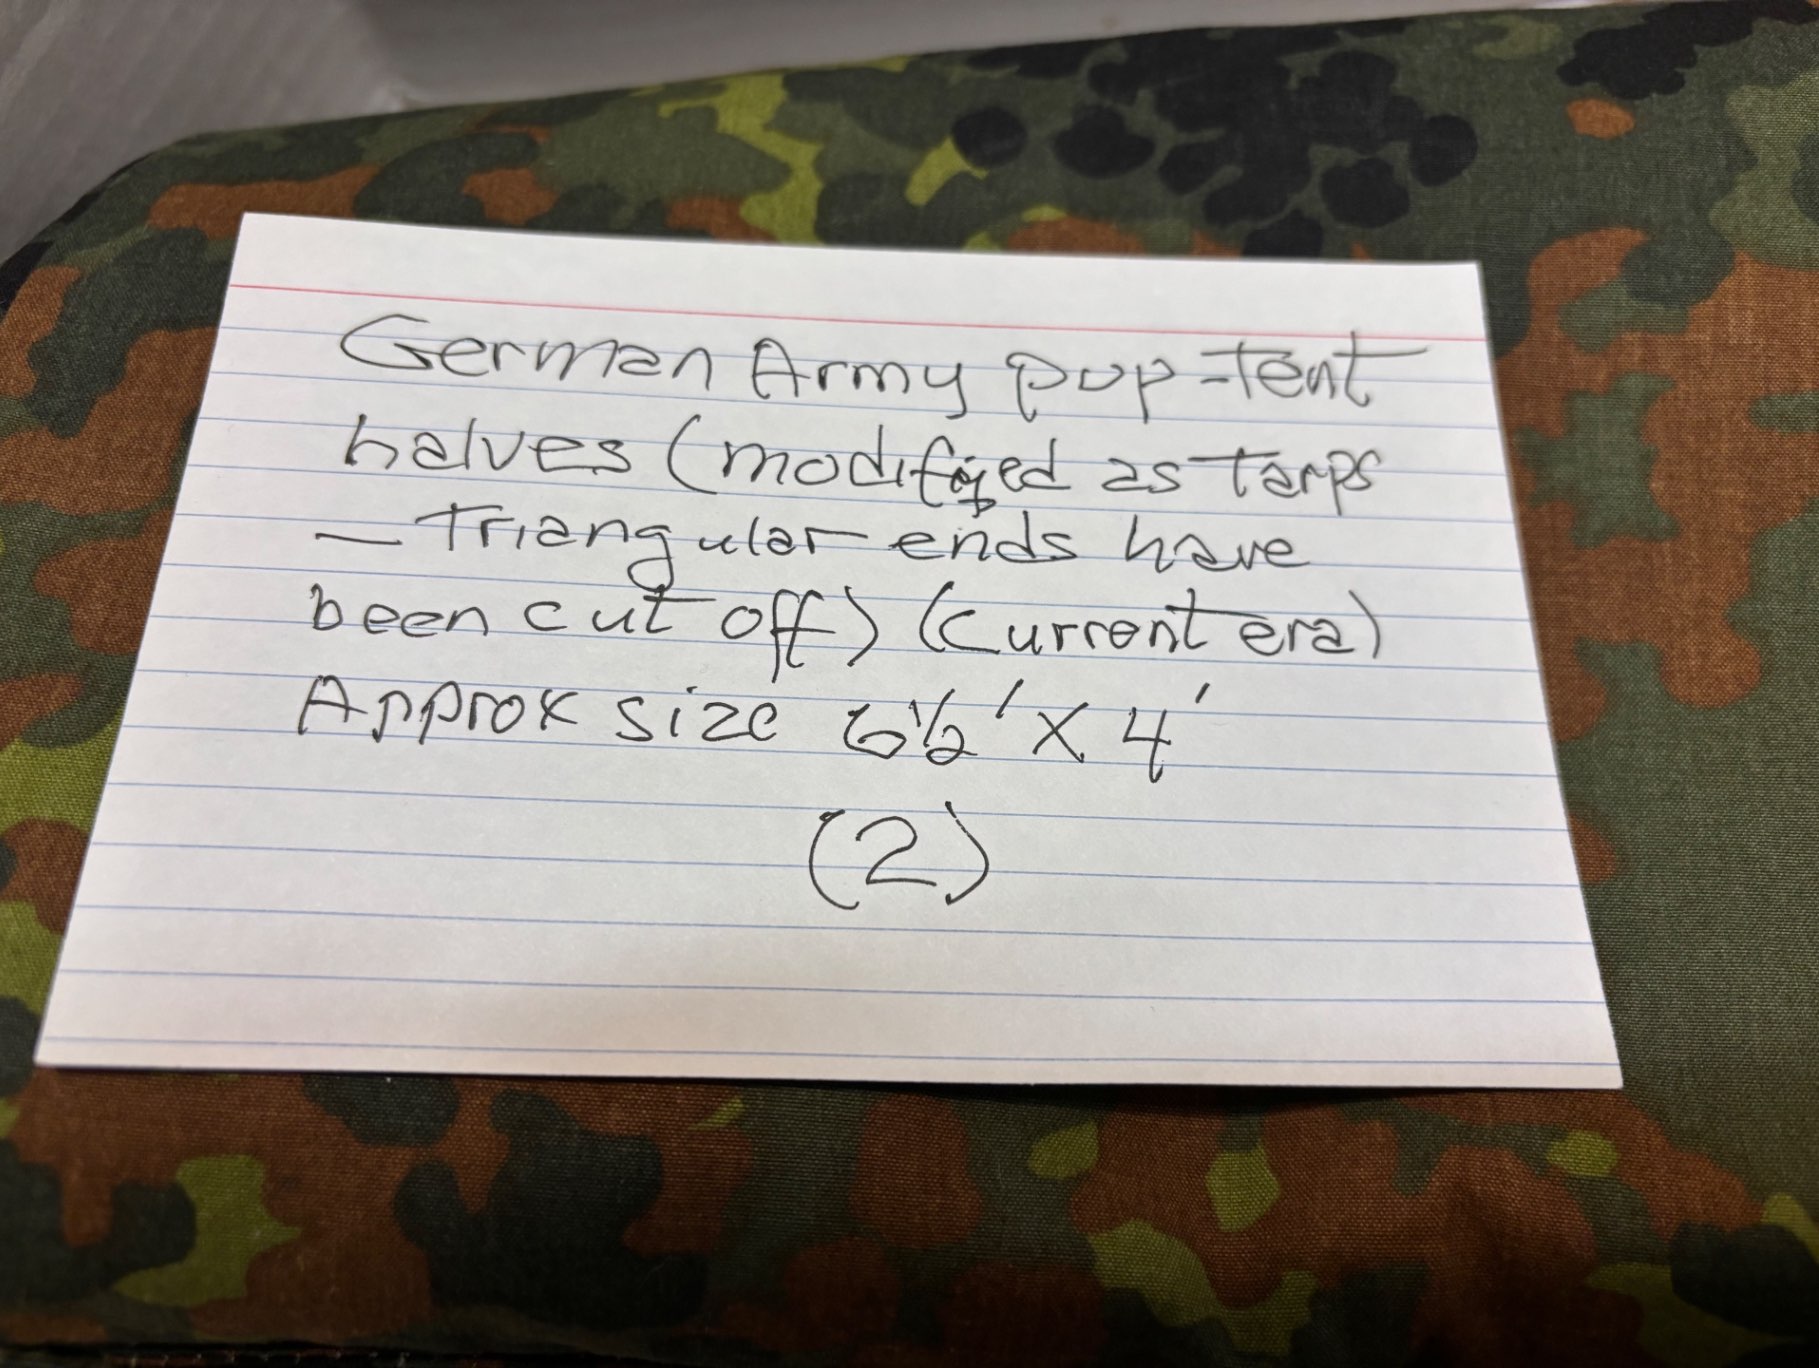 German Army pup-tent
halves (modified as tarps
— Triangular ends have
been cut off) (current era)
Approx size 6½' X 4'
(2)